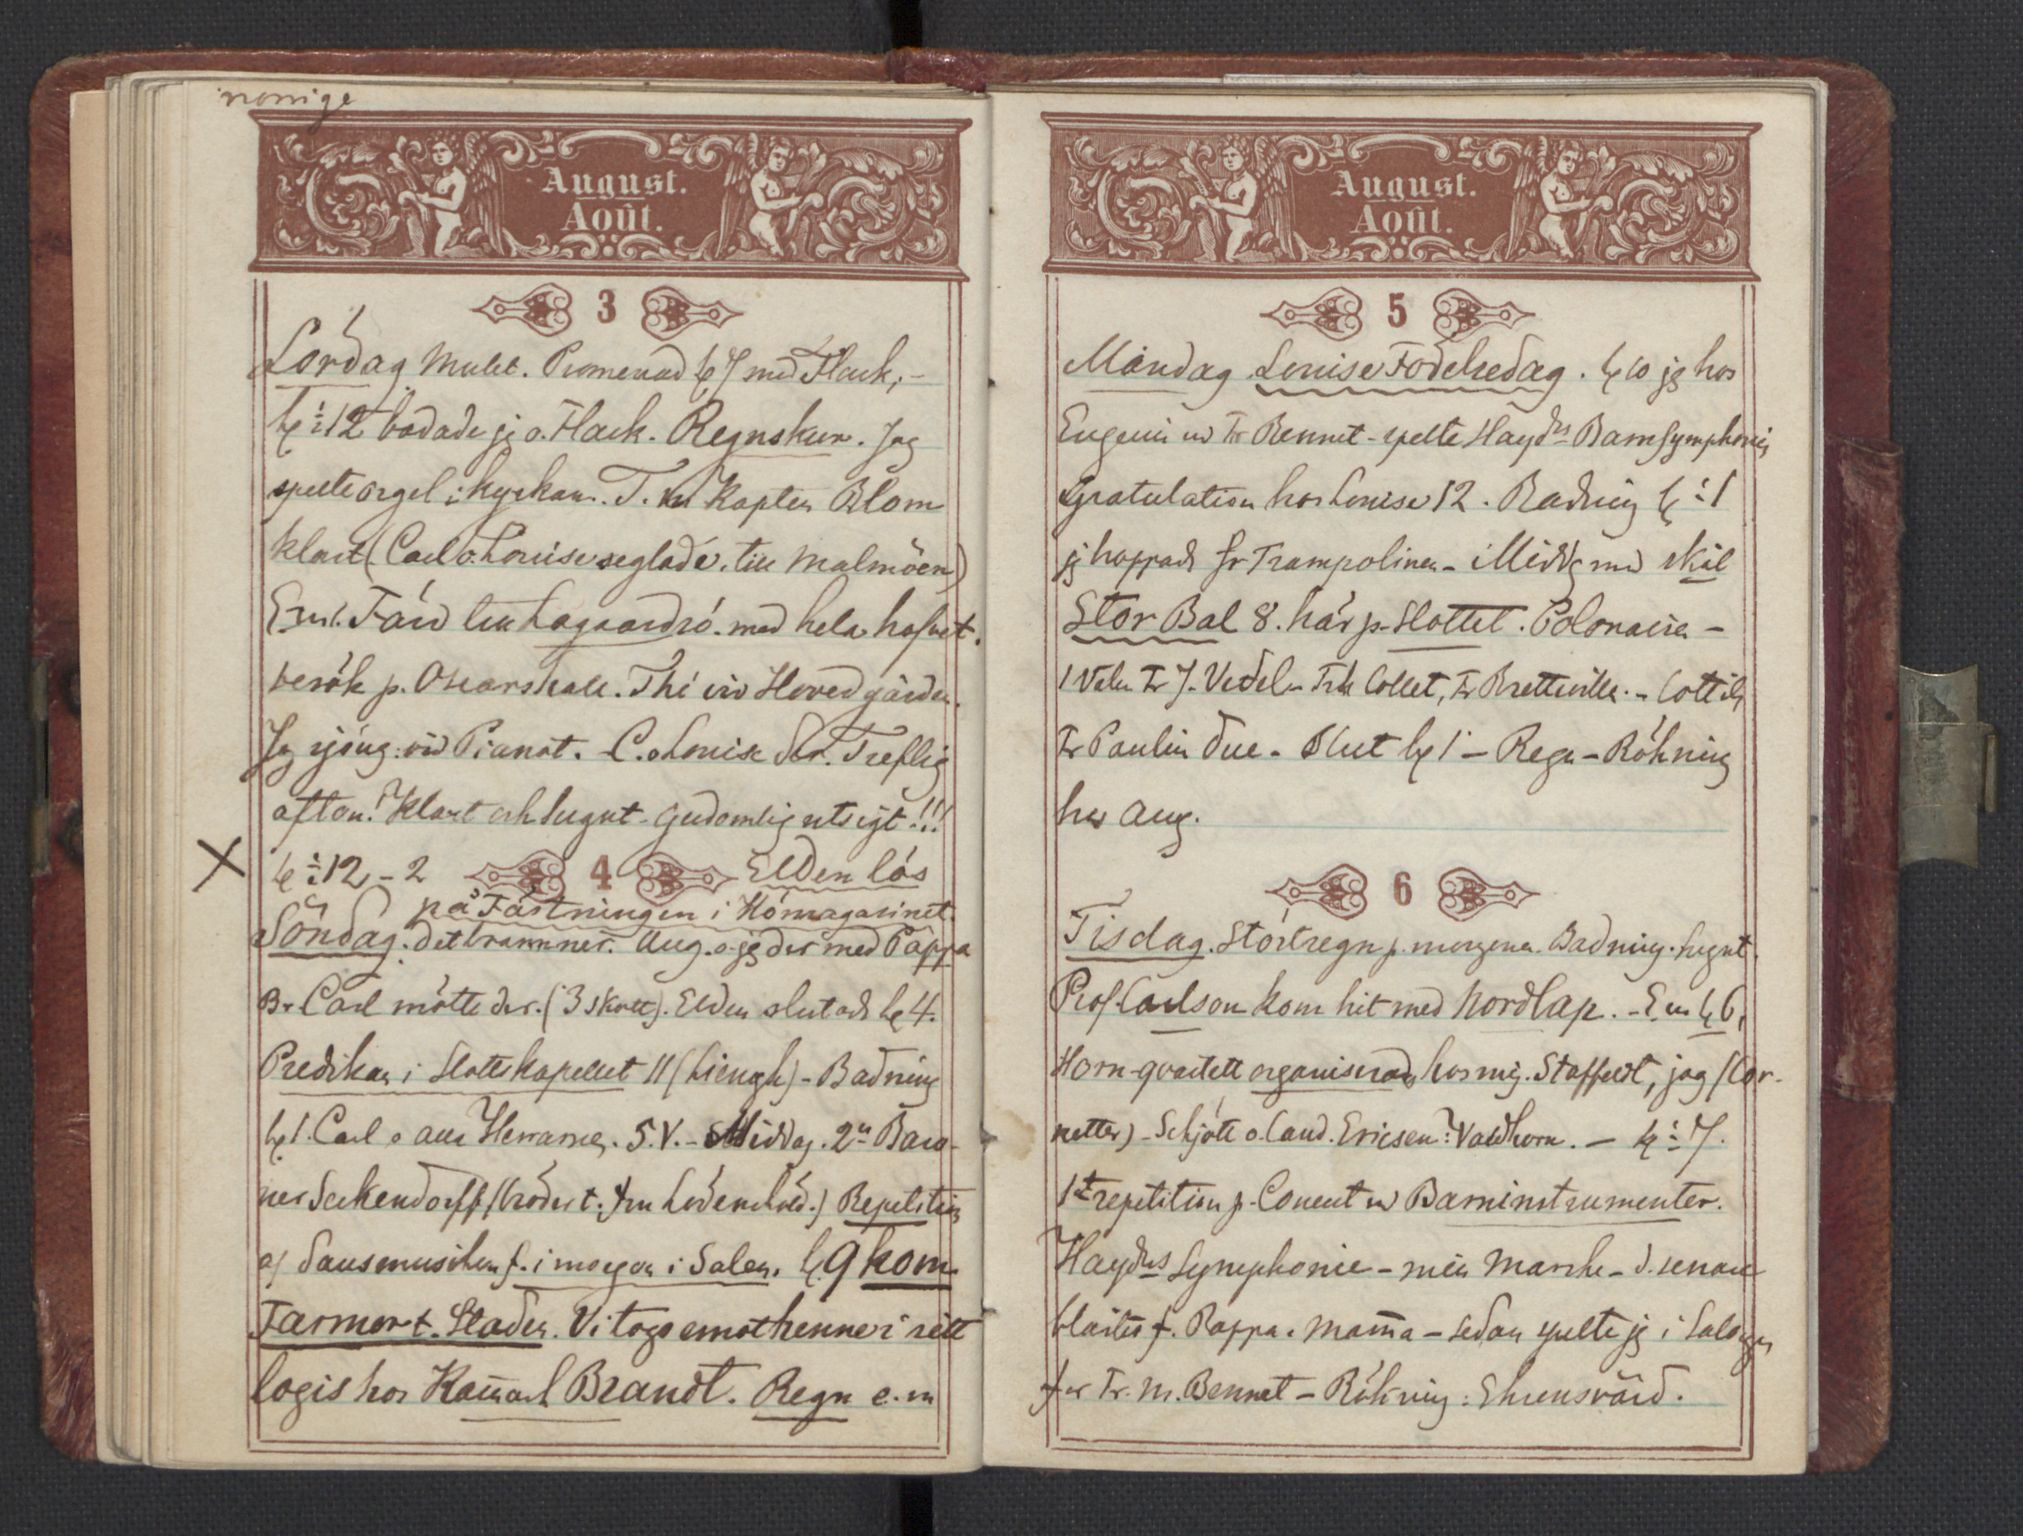 norrige
August.
Août.
3
Lördag Mulet. Promenad kl 7 med Flach,-
kl ½12 badade jg o. Flach. Regnskur. Jag
spelte orgel i kyrkan. T. Kapten Blom
klart (Carl o. Louise seglade. till Malmöen)
E.m. Färd till Lagaardsö. med hela hofvet.
besök p. Oscarshall. Thé vid Hovedgården.
Jag sjöng vid Pianot. C. o Louise der. Treflig
afton! Klart och lugnt. Gudomlig utsigt!!!
X kl ½12 - 2 4 Elden lös
på Fästningen i Hömagasinet.
Söndag. det brann ner. Aug. o jg der med Pappa
Br Carl mötte der. (3 skott). Elden slutade kl 4.
Predikan i Slottskapellet 11 (Liengh) - Badning
kl 1. Carl o alla Herrarne. S.V. - Middag. 2n Baro-
ner Seckendorff (bröder t. fru Lövenskiöld.) Repetition
af Dansmusiken f. i morgon i Salen. kl. 9 kom
Farmor t. Staden. Vi togo emot henne i sitt
logis hos Kammarh Brandt. Regn e.m
August.
Août.
5
Måndag Louise Födelsedag. kl 10 jg hos
Eugenie Fr Bennet - spelte Haydns Barnsymphonie
Gratulation hos Louise 12. Badning kl ½1
jg hoppade fr Trampolinen - Middg med skål
Stor Bal 8. här p. Slottet. Polonaise -
1 Vals Fr J. Vedel - Frk Collet, Fr Bretteville. - Cottilj
Fr Paulin Due - Slut kl 1 - Regn - Röhning
hos Aug.
6
Tisdag. Störtregn p. morgonen. Badning. lugnt.
Prof. Carlson kom hit med Nordlap. - E.m kl 6,
Horn-qvartett organiserades hos mig. Staffeldt, jag (Cor-
netter) - Schjött o. Cand. Ericsen: Valdhorn. - kl ½ 7.
1st repetition p. Concert Barninstrumenter.
Haydns Symphonie - min Marsche - d. senare
blåstes f. Pappa. Mamma - Sedan spelte jg i Salongen
för Fr. M. Bennet - Röhning: Ehrensvärd.